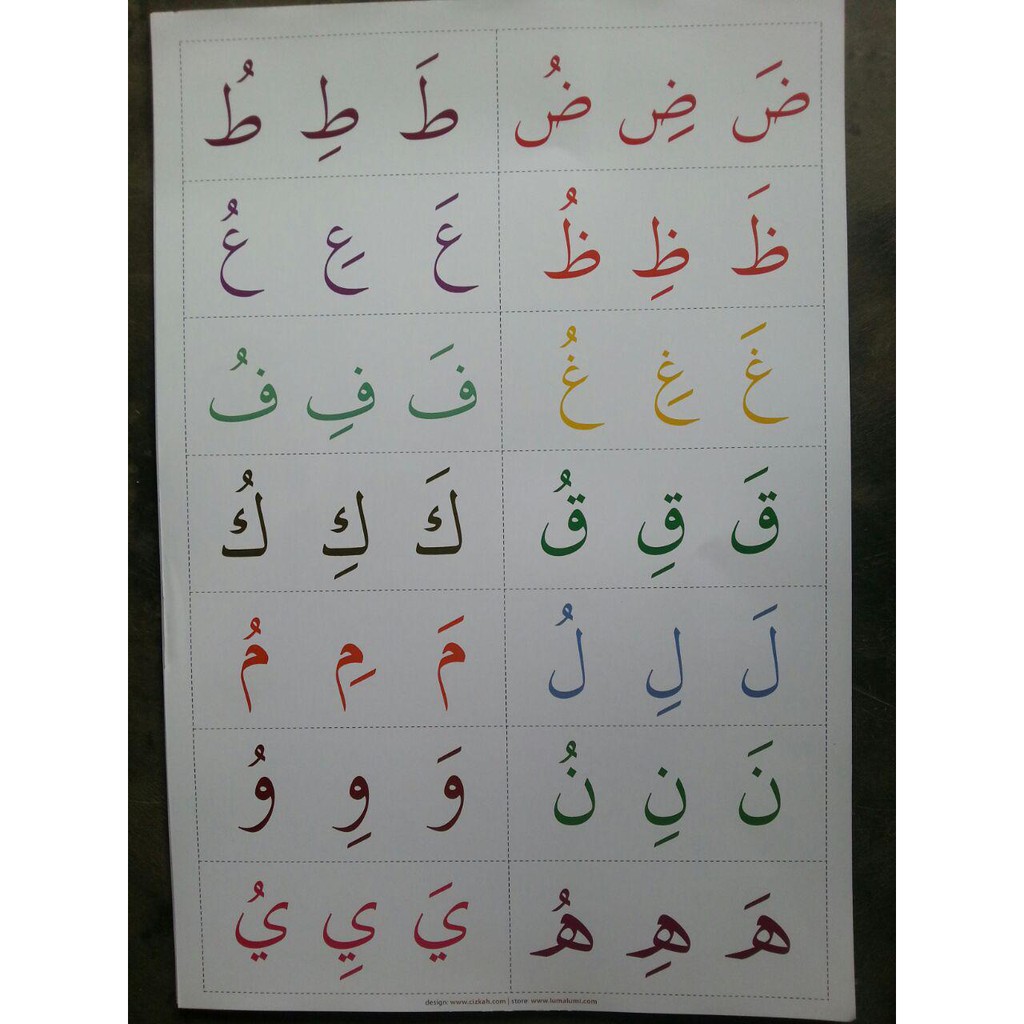 ضَ ضِ ضُ طَ طِ طُ
ظَ ظِ ظُ عَ عِ عُ
غَ غِ غُ فَ فِ فُ
قَ قِ قُ كَ كِ كُ
لَ لِ لُ مَ مِ مُ
نَ نِ نُ وَ وِ وُ
هَ هِ هُ يَ يِ يُ
design: www.cizkah.com | store: www.lumalumi.com